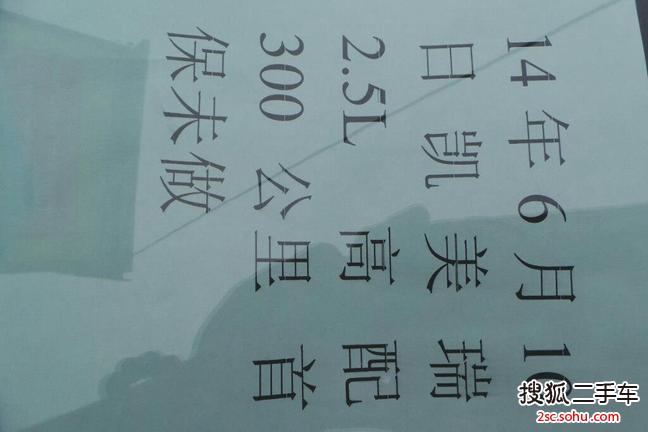 14 年 6 月 16
日 凯 美 瑞
2.5L 高 配
300 公 里 首
保 未 做
搜狐二手车
2sc.sohu.com